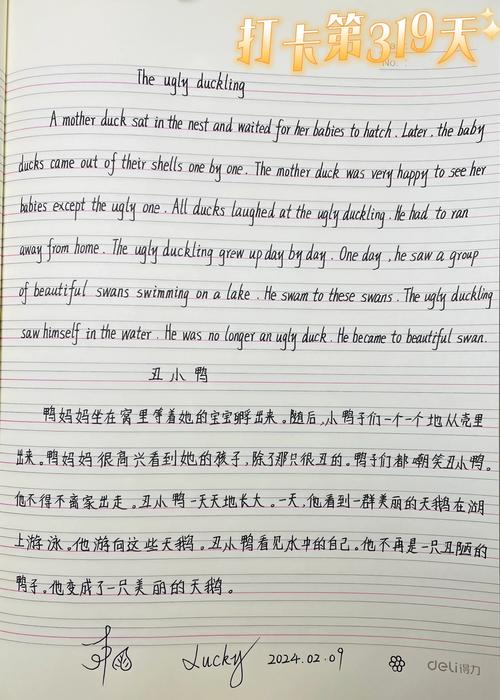 打卡第319天
No.
The ugly duckling
A mother duck sat in the nest and waited for her babies to hatch. Later, the baby
ducks came out of their shells one by one. The mother duck was very happy to see her
babies except the ugly one. All ducks laughed at the ugly duckling. He had to ran
away from home. The ugly duckling grew up day by day. One day, he saw a group
of beautiful swans swimming on a lake. He swam to these swans. The ugly duckling
saw himself in the water. He was no longer an ugly duck. He became to beautiful swan.
丑小鸭
鸭妈妈坐在窝里等着她的宝宝孵出来。随后,小鸭子们一个一个地从壳里
出来。鸭妈妈很高兴看到她的孩子,除了那只很丑的。鸭子们都嘲笑丑小鸭。
他不得不离家出走。丑小鸭一天天地长大。一天,他看到一群美丽的天鹅在湖
上游泳。他游向这些天鹅。丑小鸭看见水中的自己。他不再是一只丑陋的
鸭子。他变成了一只美丽的天鹅。
Lucky 2024.02.09
deli得力